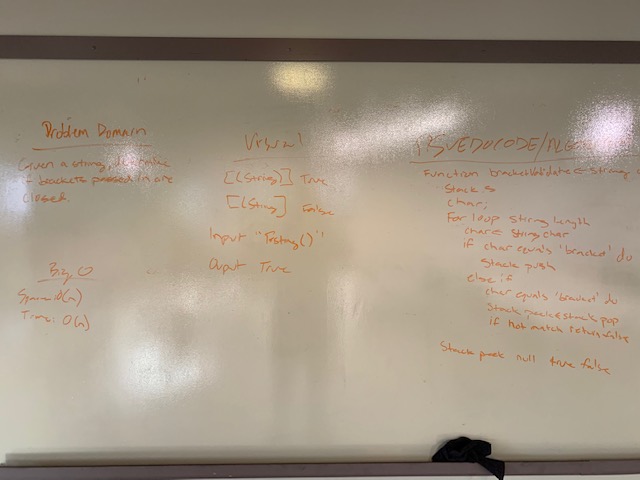 Problem Domain
Given a string, determine
if brackets passed in are
closed.
Big O
Space: O(n)
Time: O(n)
Visual
[(String)] True
[(String] False
Input "Testing()"
Ouput True
PSUEDOCODE/
Function bracketValidate string
Stack s
char;
For loop string length
char string char
if char equals 'bracket' do
Stack push
else if
char equals 'bracket' do
Stack peek stack pop
if not match return false
Stack peek null true false